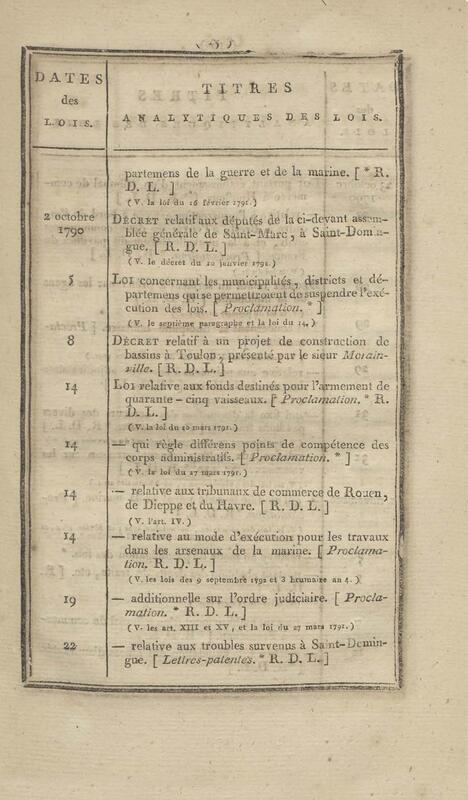 ( 5 )
DATES
des
LOIS.
TITRES
ANALYTIQUES DES LOIS.
partemens de la guerre et de la marine. [ * R.
D. L. ]
( V. la loi du 16 février 1791. )
2 octobre
1790
DÉCRET relatif aux députés de la ci-devant assem-
blée générale de Saint-Marc, à Saint-Domin-
gue. [ R. D. L. ]
( V. le décret du 12 janvier 1791. )
5
LOI concernant les municipalités, districts et dé-
partemens qui se permettroient de suspendre l'exé-
cution des lois. [ Proclamation. * ]
( V. le septième paragraphe et la loi du 14. )
8
DÉCRET relatif à un projet de construction de
bassins à Toulon, présenté par le sieur Morain-
ville. [ R. D. L. ]
14
LOI relative aux fonds destinés pour l'armement de
quarante-cinq vaisseaux. [ Proclamation. * R.
D. L. ]
( V. la loi du 10 mars 1791. )
14
— qui règle différens points de compétence des
corps administratifs. [ Proclamation. * ]
( V. la loi du 27 mars 1791. )
14
— relative aux tribunaux de commerce de Rouen,
de Dieppe et du Havre. [ R. D. L. ]
( V. l'art. IV. )
14
— relative au mode d'exécution pour les travaux
dans les arsenaux de la marine. [ Proclama-
tion. R. D. L. ]
( V. les lois des 9 septembre 1792 et 3 brumaire an 4. )
19
— additionnelle sur l'ordre judiciaire. [ Procla-
mation. * R. D. L. ]
( V. les art. XIII et XV, et la loi du 27 mars 1791. )
22
— relative aux troubles survenus à Saint-Domin-
gue. [ Lettres-patentes. * R. D. L. ]